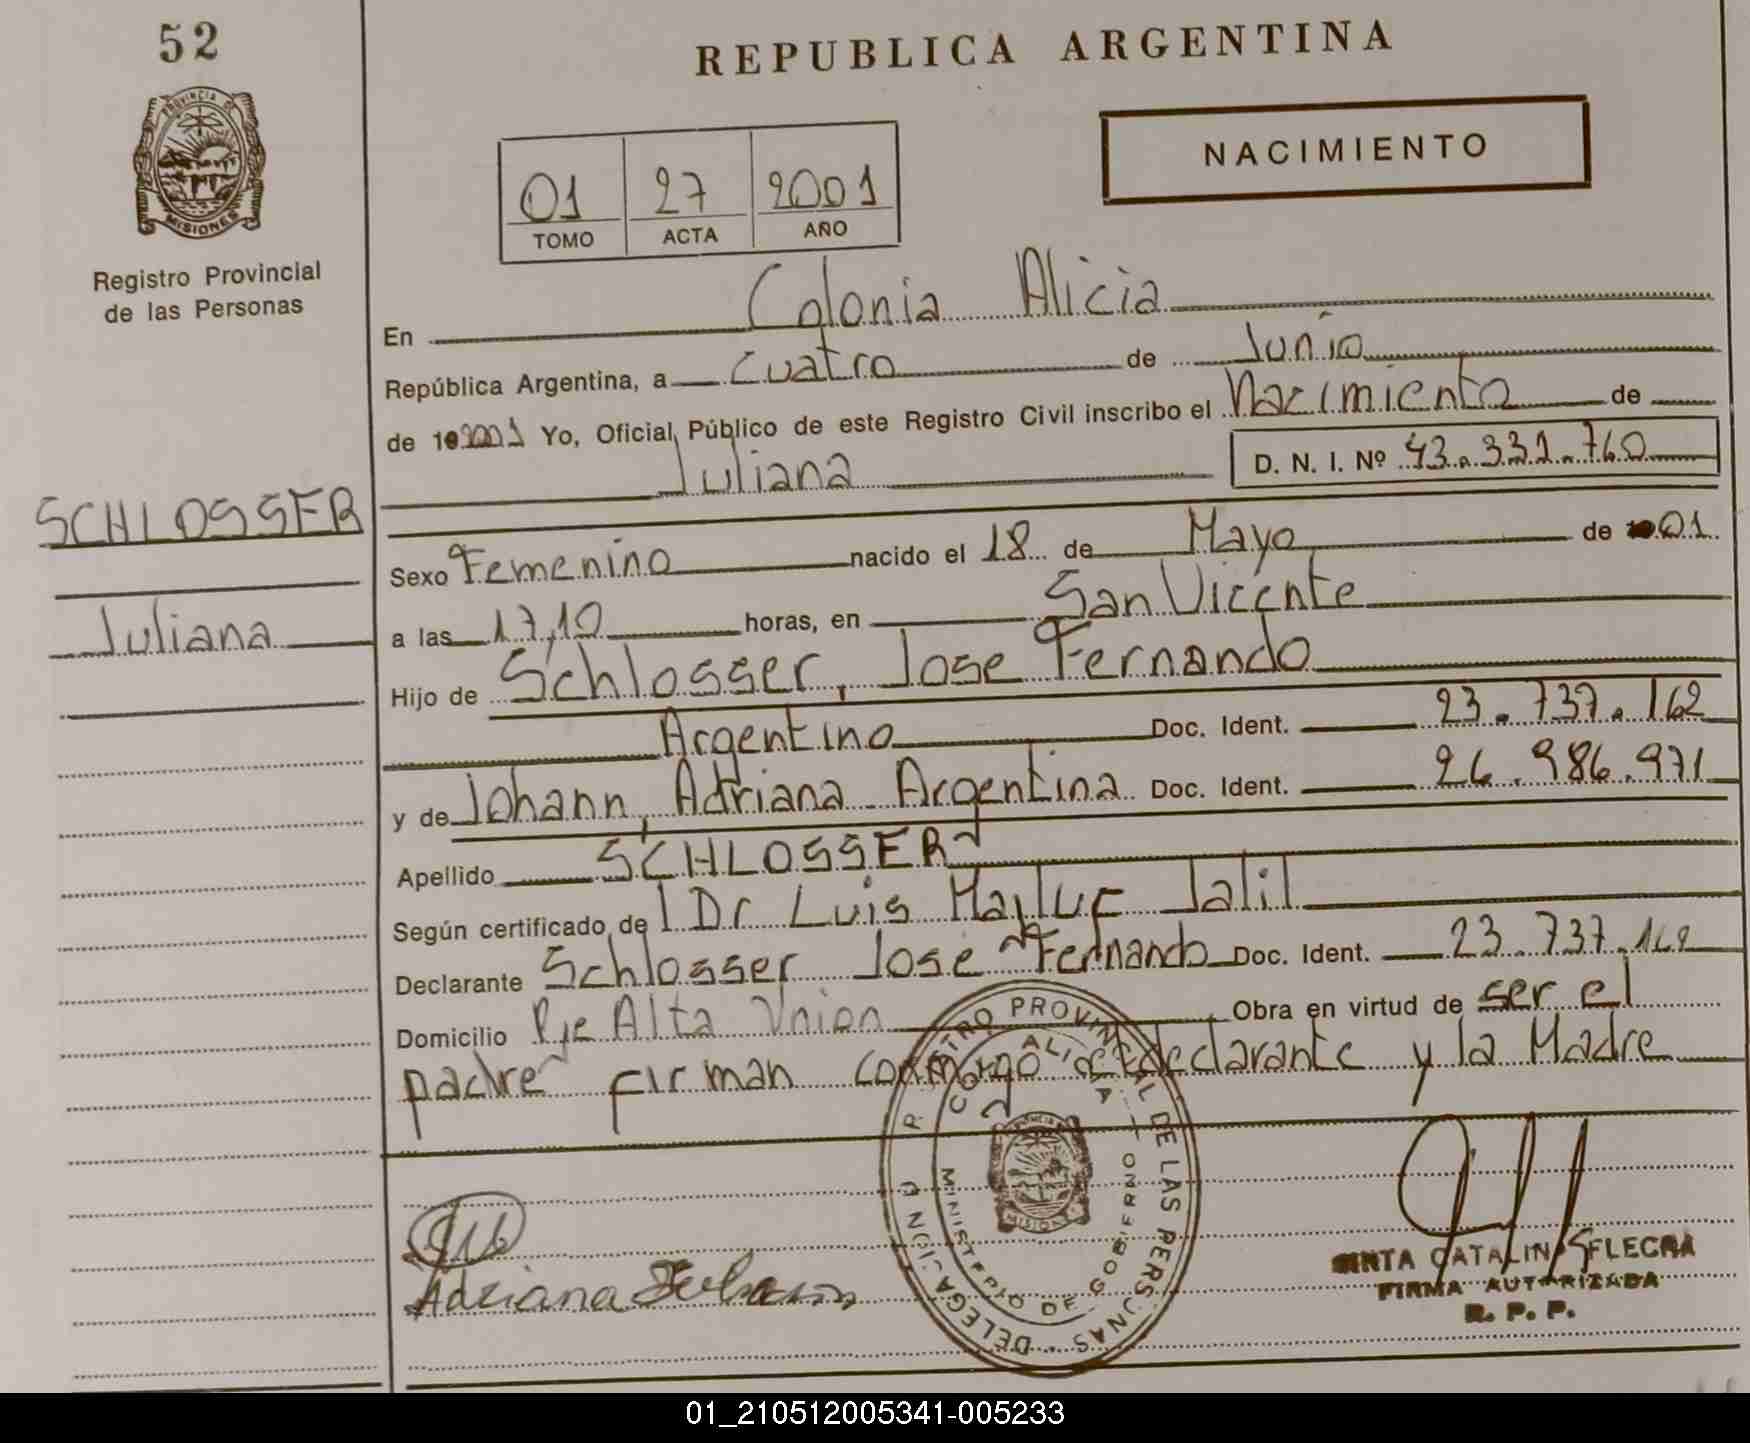 52
REPUBLICA ARGENTINA
PROVINCIA DE
MISIONES
Registro Provincial
de las Personas
NACIMIENTO
01 27 2001
TOMO ACTA AÑO
En Colonia Alicia
República Argentina, a Cuatro de Junio
de 2001 Yo, Oficial Público de este Registro Civil inscribo el Nacimiento de
Juliana D. N. I. Nº 43.331.760
SCHLOSSER
Juliana
Sexo Femenino nacido el 18 de Mayo de 01
a las 17,10 horas, en San Vicente
Hijo de Schlosser, Jose Fernando
Argentino Doc. Ident. 23.737.162
y de Johann, Adriana Argentina Doc. Ident. 26.986.971
Apellido SCHLOSSER
Según certificado de Dr Luis Jalil
Declarante Schlosser Jose Fernando Doc. Ident. 23.737.162
Domicilio Pje Alta Union Obra en virtud de ser el
padre firman conmigo declarante y la Madre
REGISTRO PROVINCIAL DE LAS PERSONAS
DELEGACION
COLONIA ALICIA
MINISTERIO DE GOBIERNO
MISIONES
Adriana
CATALINA FLECHA
FIRMA AUTORIZADA
R. P. P.
01_210512005341-005233